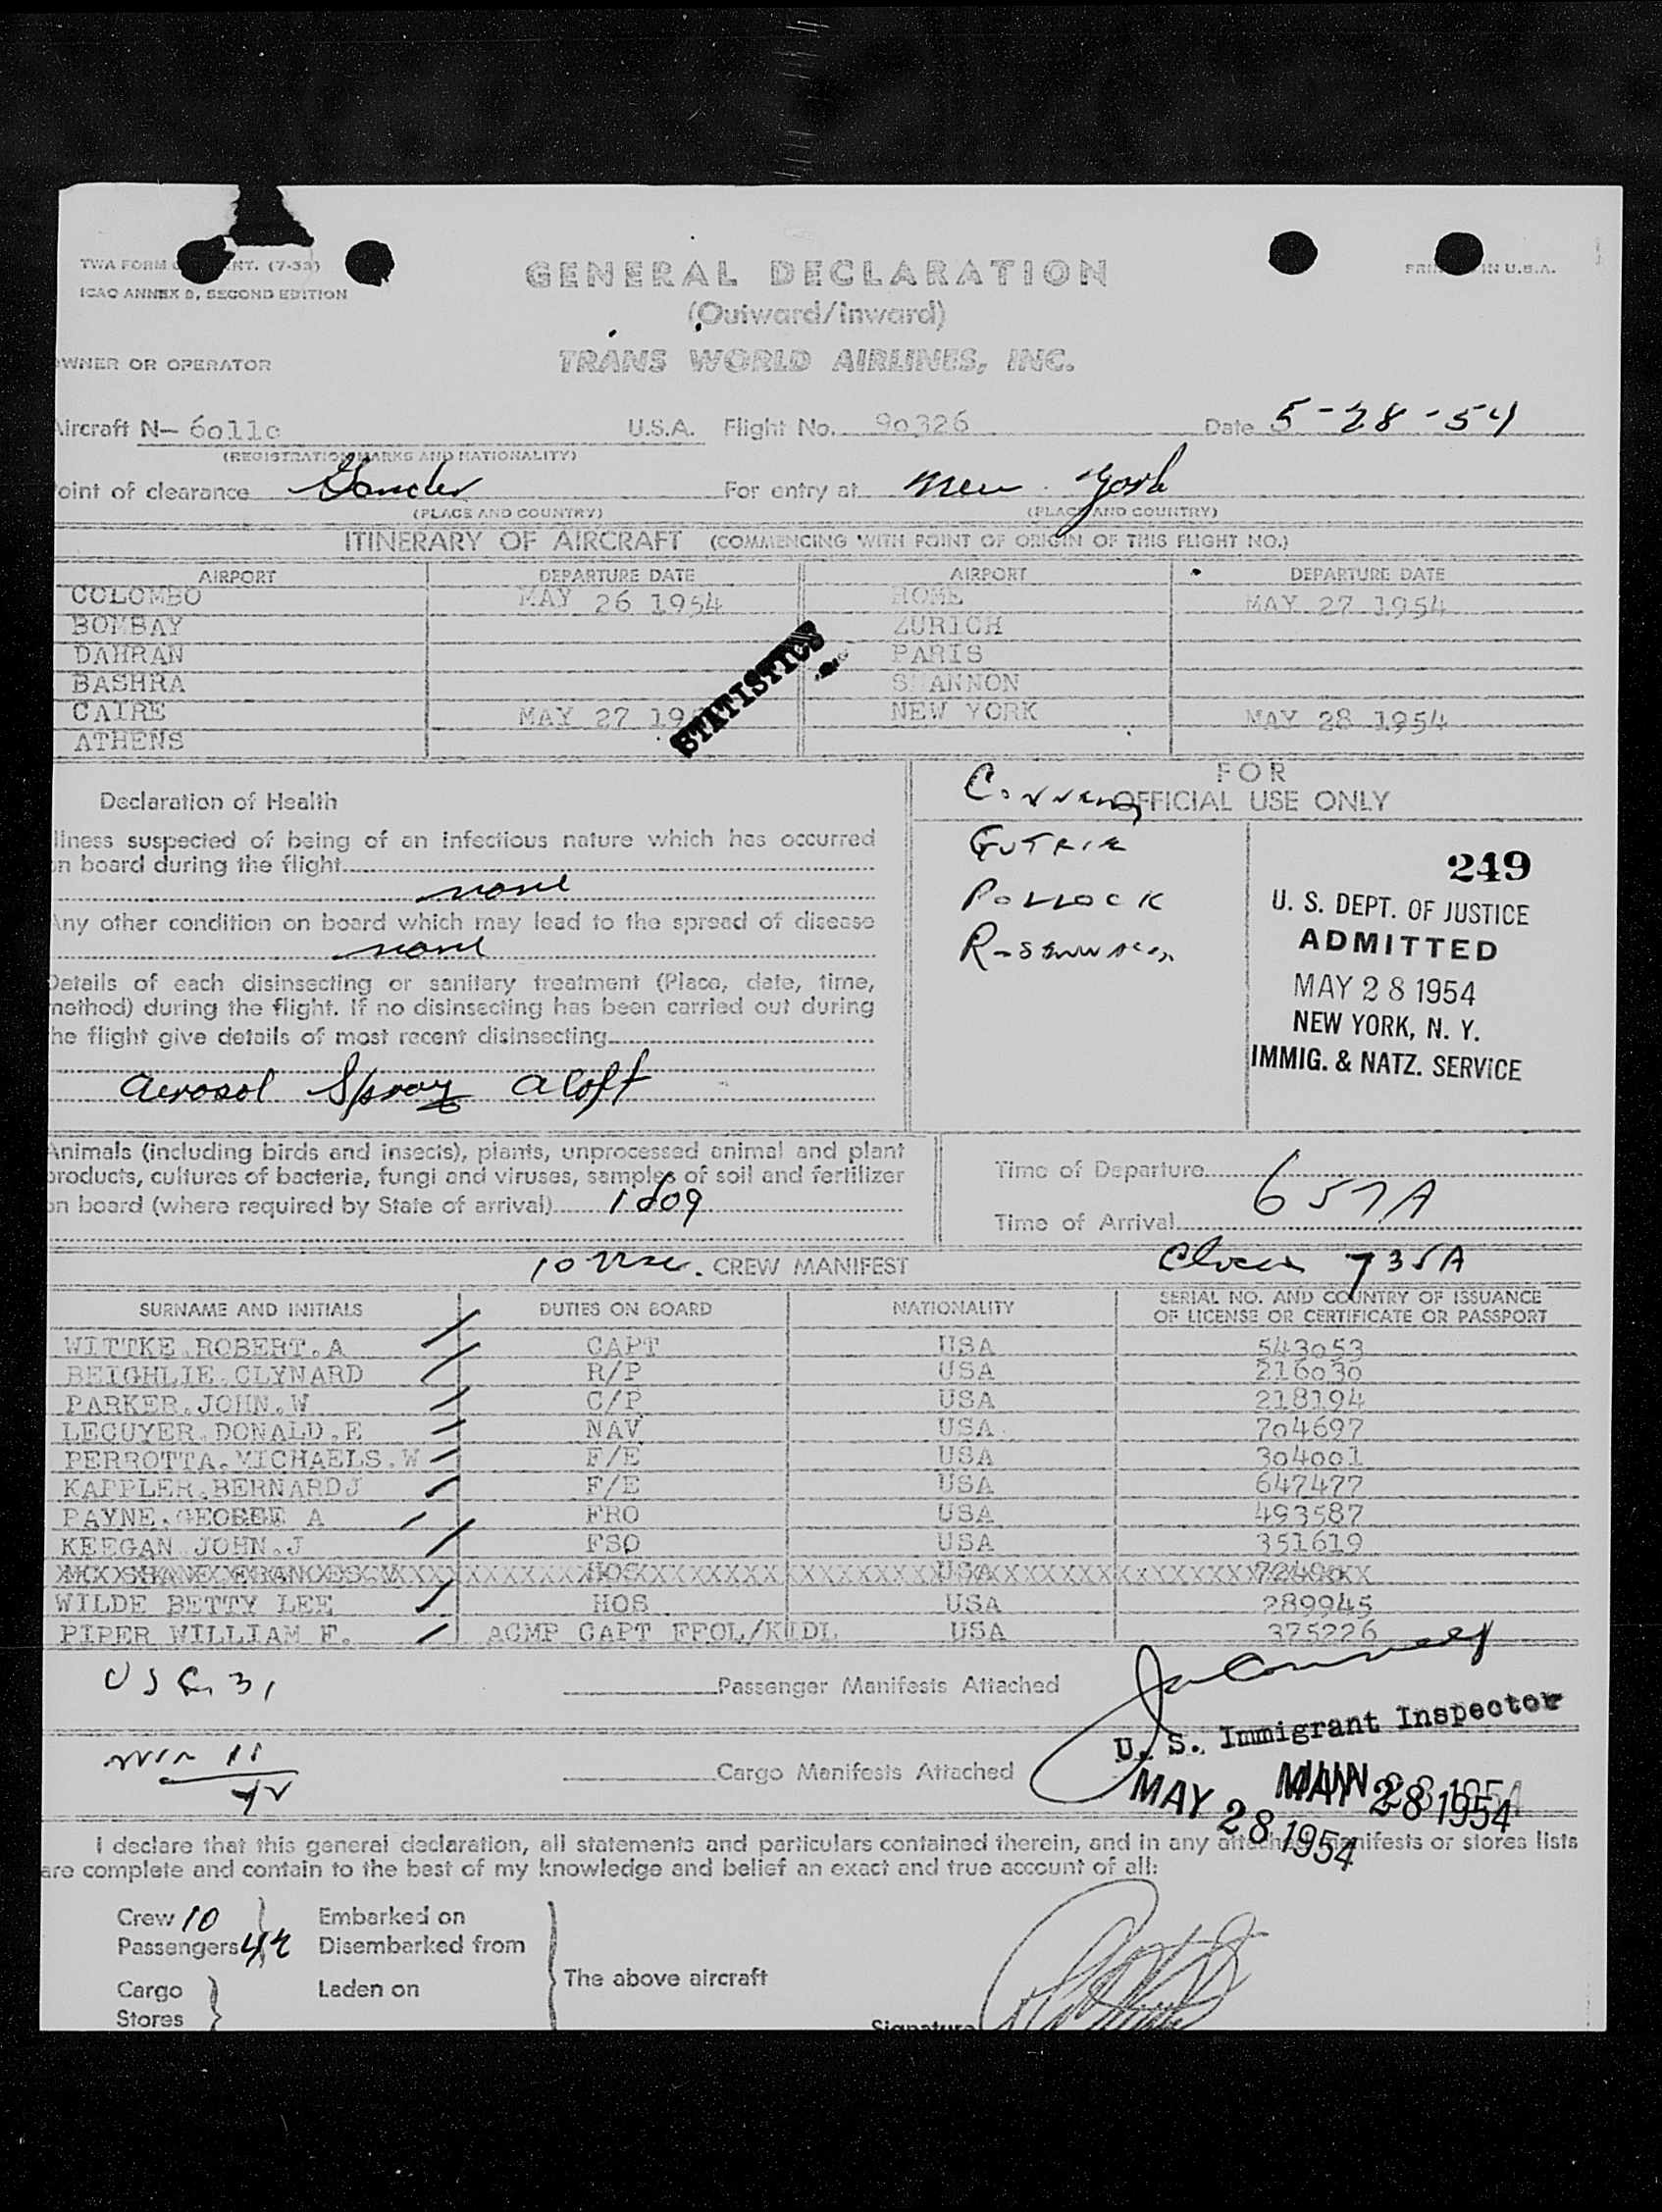 TWA FORM ENT. (7-53)
PRIN IN U.S.A.
ICAO ANNEX 9, SECOND EDITION
GENERAL DECLARATION
(Outward/Inward)
WNER OR OPERATOR TRANS WORLD AIRLINES, INC.
Aircraft N- 6011c U.S.A. Flight No. 90326 Date 5-28-54
(REGISTRATION MARKS AND NATIONALITY)
oint of clearance Gander For entry at New York
(PLACE AND COUNTRY) (PLACE AND COUNTRY)
ITINERARY OF AIRCRAFT (COMMENCING WITH POINT OF ORIGIN OF THIS FLIGHT NO.)
AIRPORT DEPARTURE DATE AIRPORT DEPARTURE DATE
COLOMBO MAY 26 1954 ROME MAY 27 1954
BOMBAY ZURICH
DAHRAN PARIS
BASHRA S ANNON
CAIRE MAY 27 19 NEW YORK MAY 28 1954
ATHENS
STATISTICS
FOR
OFFICIAL USE ONLY
Declaration of Health
llness suspected of being of an infectious nature which has occurred
n board during the flight
none
Any other condition on board which may lead to the spread of disease
none
Details of each disinsecting or sanitary treatment (Place, date, time,
method) during the flight. If no disinsecting has been carried out during
he flight give details of most recent disinsecting
Aerosol Spray aloft
GUTRIE
POLLOCK
249
U. S. DEPT. OF JUSTICE
ADMITTED
MAY 28 1954
NEW YORK, N. Y.
IMMIG. & NATZ. SERVICE
Animals (including birds and insects), plants, unprocessed animal and plant
products, cultures of bacteria, fungi and viruses, samples of soil and fertilizer
on board (where required by State of arrival) 1 dog
Time of Departure
Time of Arrival 657A
735A
CREW MANIFEST
SURNAME AND INITIALS DUTIES ON BOARD NATIONALITY SERIAL NO. AND COUNTRY OF ISSUANCE
OF LICENSE OR CERTIFICATE OR PASSPORT
WITTKE.ROBERT.A CAPT USA 543053
BEIGHLIE.CLYNARD R/P USA 216030
PARKER.JOHN.W C/P USA 218194
LECUYER.DONALD.E NAV USA 704697
PERROTTA.MICHAELS.W F/E USA 304001
KAPPLER.BERNARDJ F/E USA 647477
PAYNE. A FRO USA 493587
KEEGAN JOHN.J FSO USA 351619
HOS USA
WILDE BETTY LEE HOS USA 289945
PIPER WILLIAM F. ACMP CAPT USA 375226
Passenger Manifests Attached
U. S. Immigrant Inspector
Cargo Manifests Attached
MAY 28 1954
MAY 28 1954
I declare that this general declaration, all statements and particulars contained therein, and in any attached manifests or stores lists
are complete and contain to the best of my knowledge and belief an exact and true account of all:
Crew 10 Embarked on
Passengers 42 Disembarked from
The above aircraft
Cargo Laden on
Stores
Signature